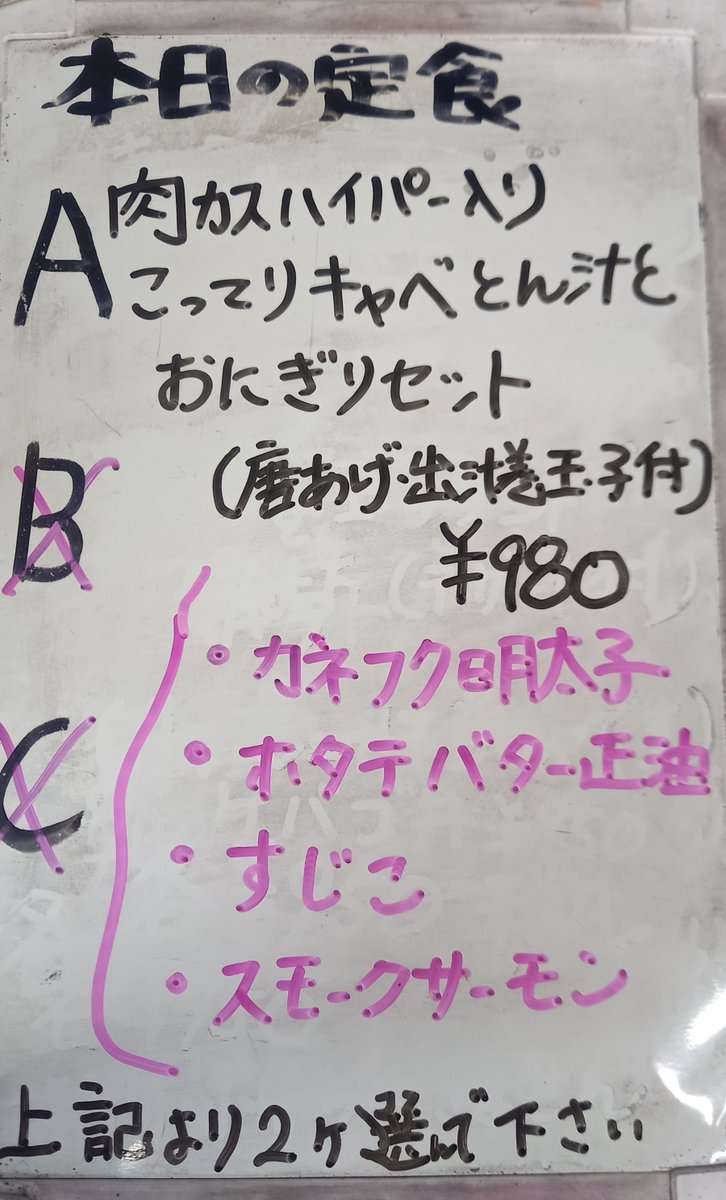 本日の定食
A 肉カスハイパー入り
こってりキャベとん汁と
おにぎりセット
B (唐あげ・出汁巻玉子付)
¥980
・カネフク明太子
・ホタテバター正油
C
・すじこ
・スモークサーモン
上記より2ヶ選んで下さい